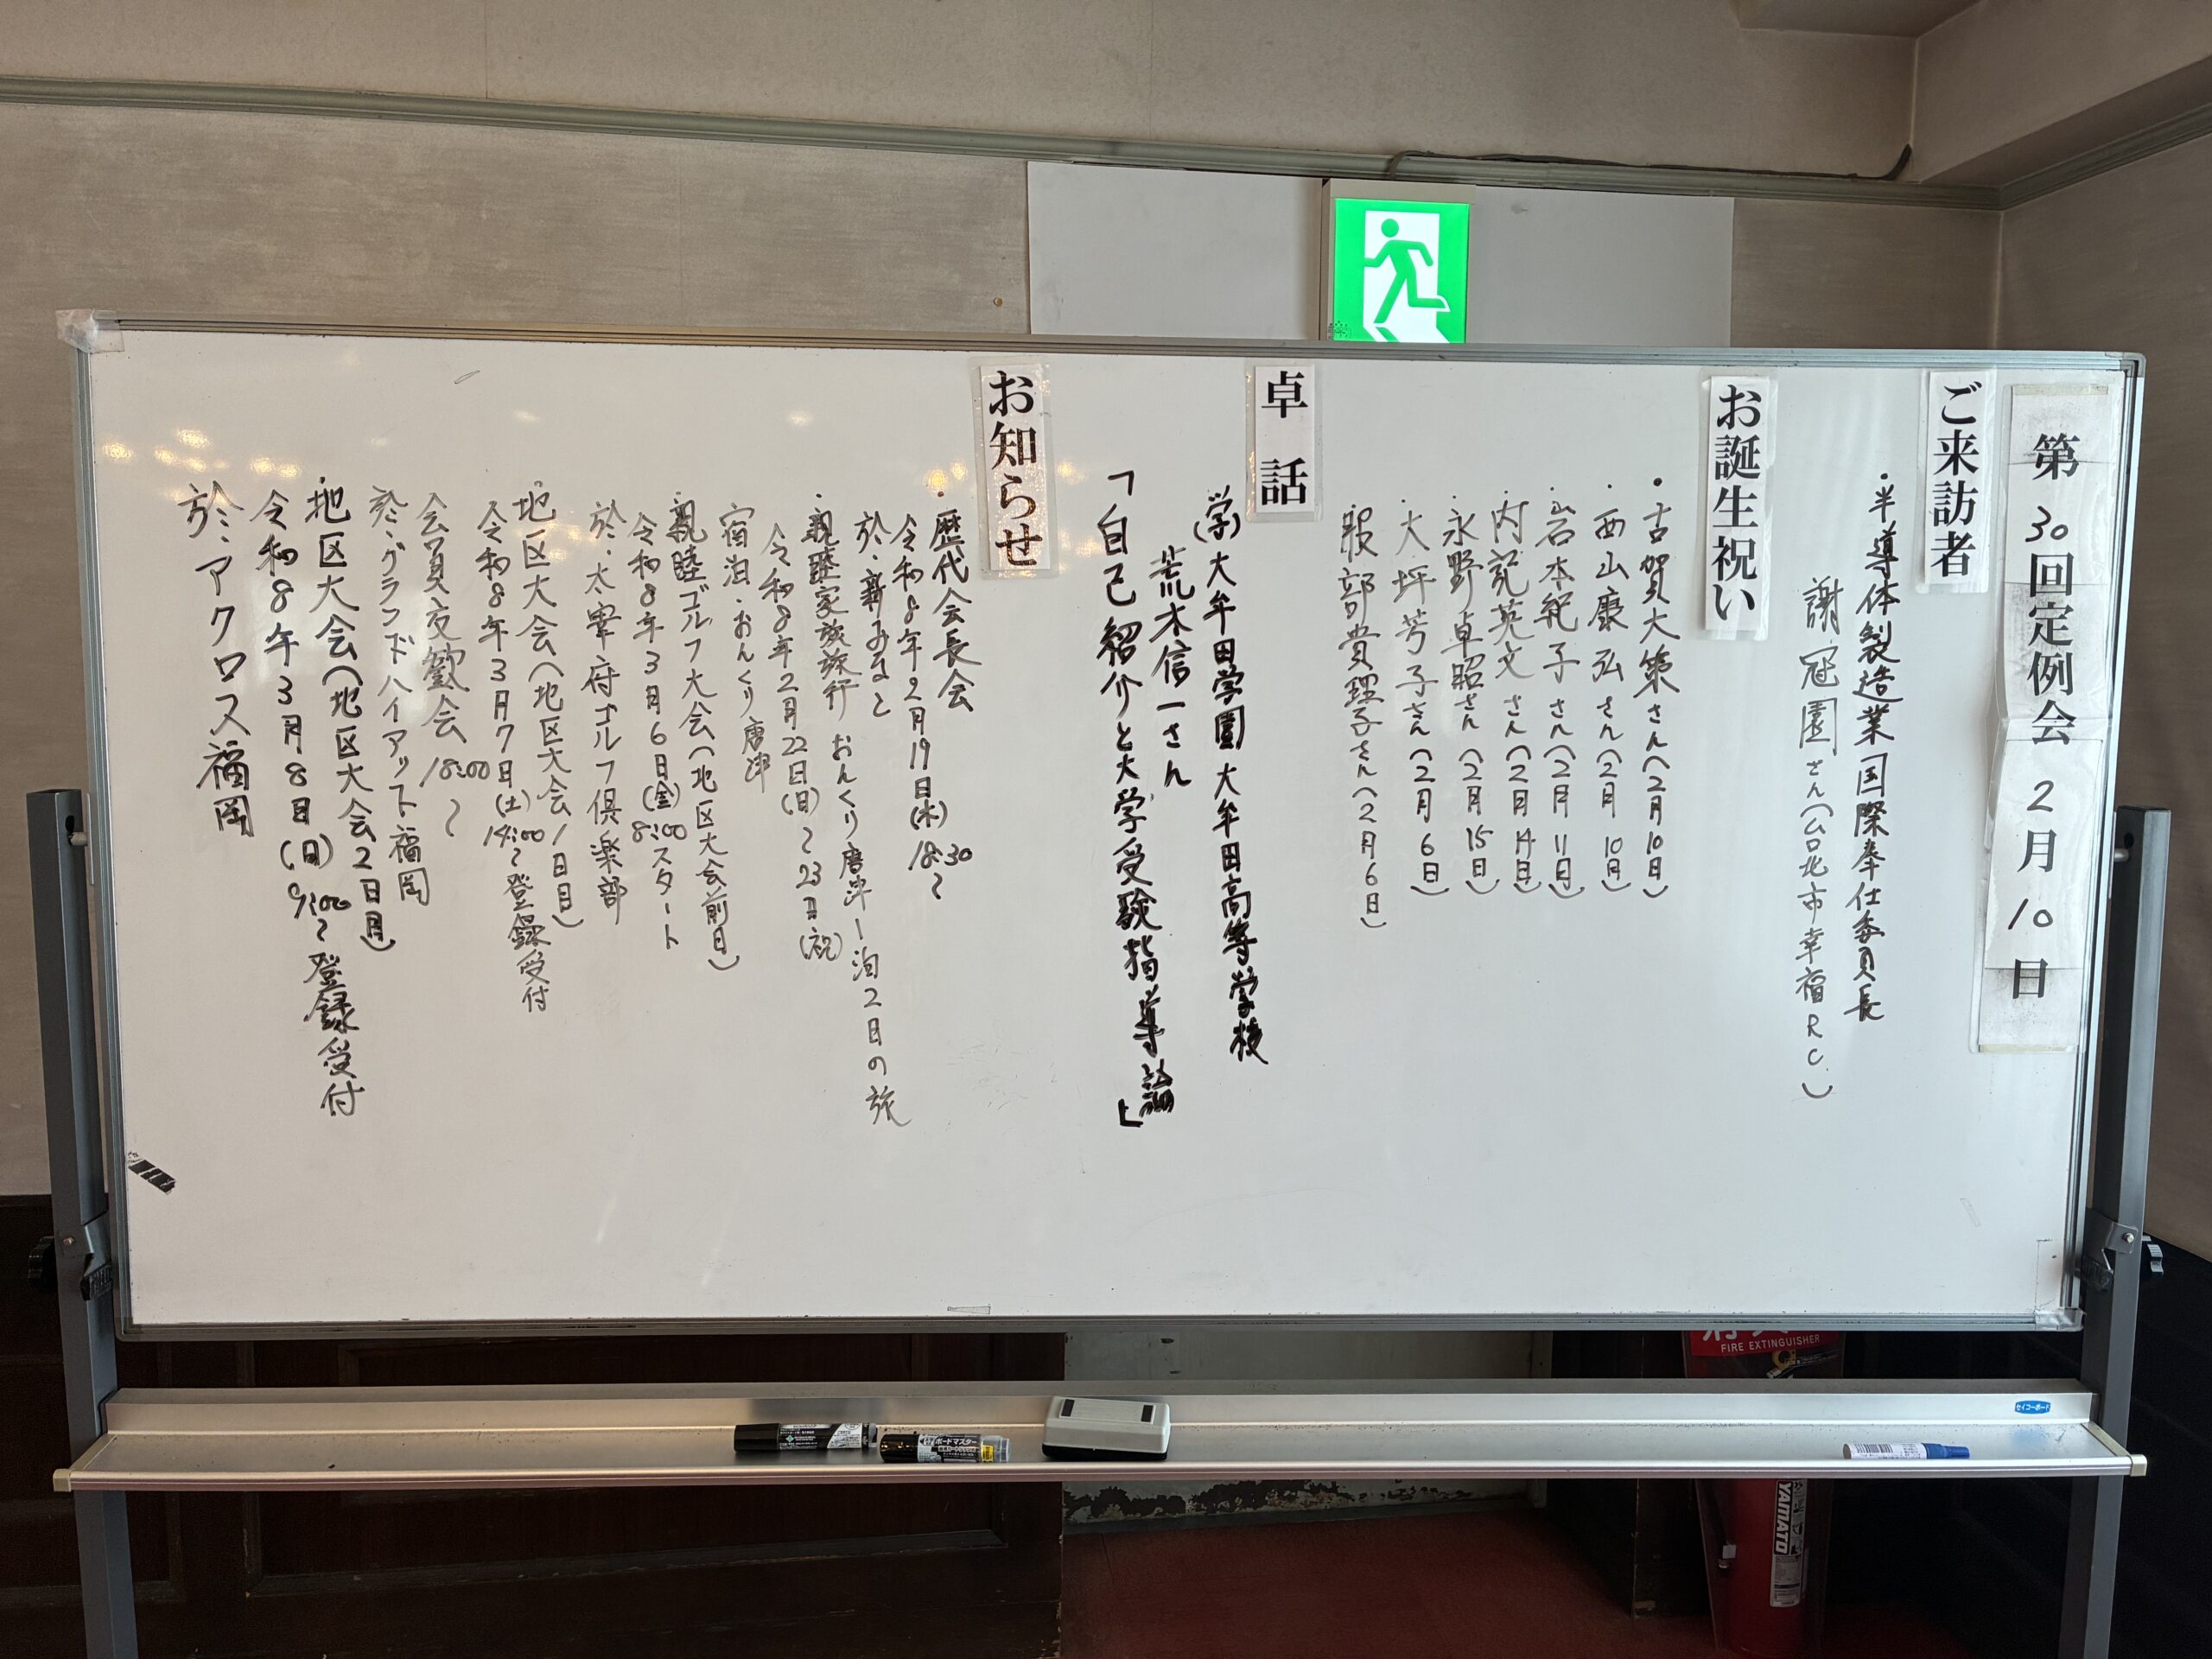 第30回定例会 2月10日
ご来訪者
・半導体製造業国際奉仕委員長
謝冠園さん(台北市幸福RC)
お誕生祝い
・古賀大策さん(2月10日)
・西山康弘さん(2月10日)
・岩本範子さん(2月11日)
・内記英文さん(2月14日)
・永野卓昭さん(2月15日)
・大坪芳子さん(2月6日)
服部貴理子さん(2月6日)
卓話
(学)大牟田学園 大牟田高等学校
荒木信一さん
「自己紹介と大学受験指導論」
お知らせ
・歴代会長会
令和8年2月19日(木)18:30〜
於・新みなと
・親睦家族旅行 おんくり唐津一泊2日の旅
令和8年2月22日(日)〜23日(祝)
宿泊・おんくり唐津
・親睦ゴルフ大会(地区大会前日)
令和8年3月6日(金)8:00スタート
於・太宰府ゴルフ倶楽部
・地区大会(地区大会1日目)
令和8年3月7日(土)14:00〜登録受付
会員交歓会18:00〜
於:グランドハイアット福岡
・地区大会(地区大会2日目)
令和8年3月8日(日)9:00〜登録受付
於:アクロス福岡
FIRE EXTINGUISHER
セイコーボード
ボードマスター
YAMATO